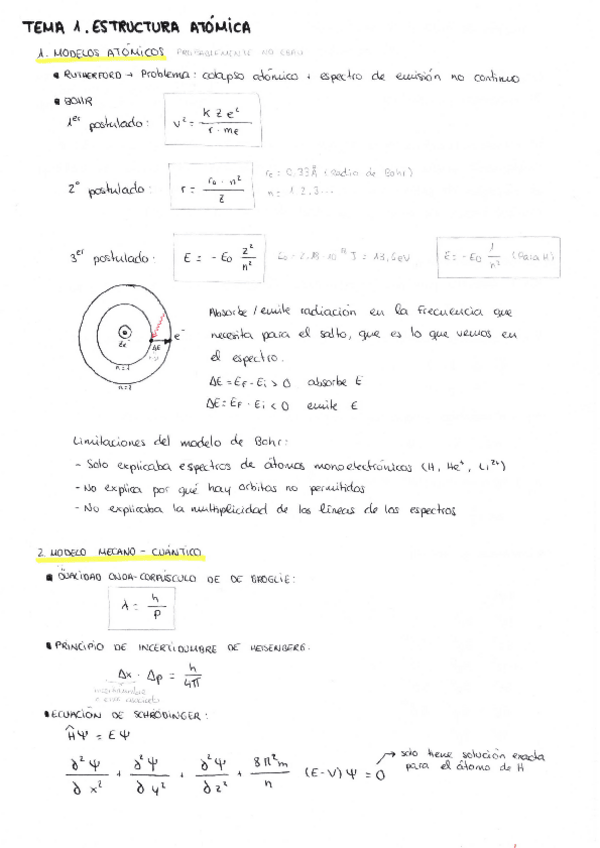 TEMA 1. ESTRUCTURA ATÓMICA
1. MODELOS ATÓMICOS PROBABLEMENTE NO EBAU
RUTHERFORD → Problema: colapso atómico + espectro de emisión no continuo
BOHR
1er postulado: v² = K Z e² / r · me
2º postulado: r = r₀ · n² / Z r₀ = 0,53Å (radio de Bohr)
n = 1 2, 3...
3er postulado: E = - E₀ Z² / n² E₀ = 2,18 · 10 J = 13,6 eV E = - E₀ 1 / n² (Para H)
e⁻
ΔE
n=1
n=2
Absorbe / emite radiación en la frecuencia que
necesita para el salto, que es lo que vemos en
el espectro.
ΔE = EF - Ei > 0 absorbe E
ΔE = EF - Ei < 0 emite E
Limitaciones del modelo de Bohr:
- Solo explicaba espectros de átomos monoelectrónicos (H, He⁺, Li²⁺)
- No explica por qué hay orbitas no permitidas
- No explicaba la multiplicidad de las líneas de los espectros
2. MODELO MECANO - CUÁNTICO
DUALIDAD ONDA-CORPÚSCULO DE DE BROGLIE:
λ = h / p
PRINCIPIO DE INCERTIDUMBRE DE HEISENBERG.
Δx · Δp = h / 4π
incertidumbre
ECUACIÓN DE SCHRÖDINGER:
ĤΨ = EΨ
∂²Ψ / ∂x² + ∂²Ψ / ∂y² + ∂²Ψ / ∂z² + 8π²m / h (E-V) Ψ = 0 → solo tiene solución exacta
para el átomo de H